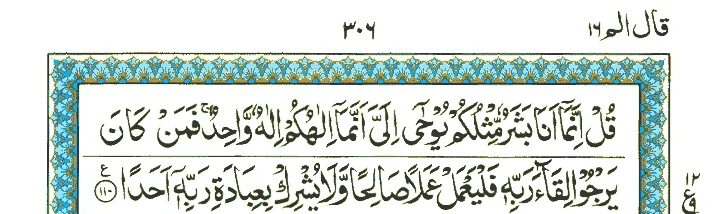 قال الم ١٦ ٣٠٦
قُلْ اِنَّمَاۤ اَنَا بَشَرٌ مِّثْلُكُمْ یُوْحٰۤى اِلَیَّ اَنَّمَاۤ اِلٰهُكُمْ اِلٰهٌ وَّاحِدٌ ۚ فَمَنْ كَانَ
یَرْجُوْا لِقَآءَ رَبِّهٖ فَلْیَعْمَلْ عَمَلًا صَالِحًا وَّلَا یُشْرِكْ بِعِبَادَةِ رَبِّهٖۤ اَحَدًا ﴿۱۱۰﴾ ع
١٢
ع